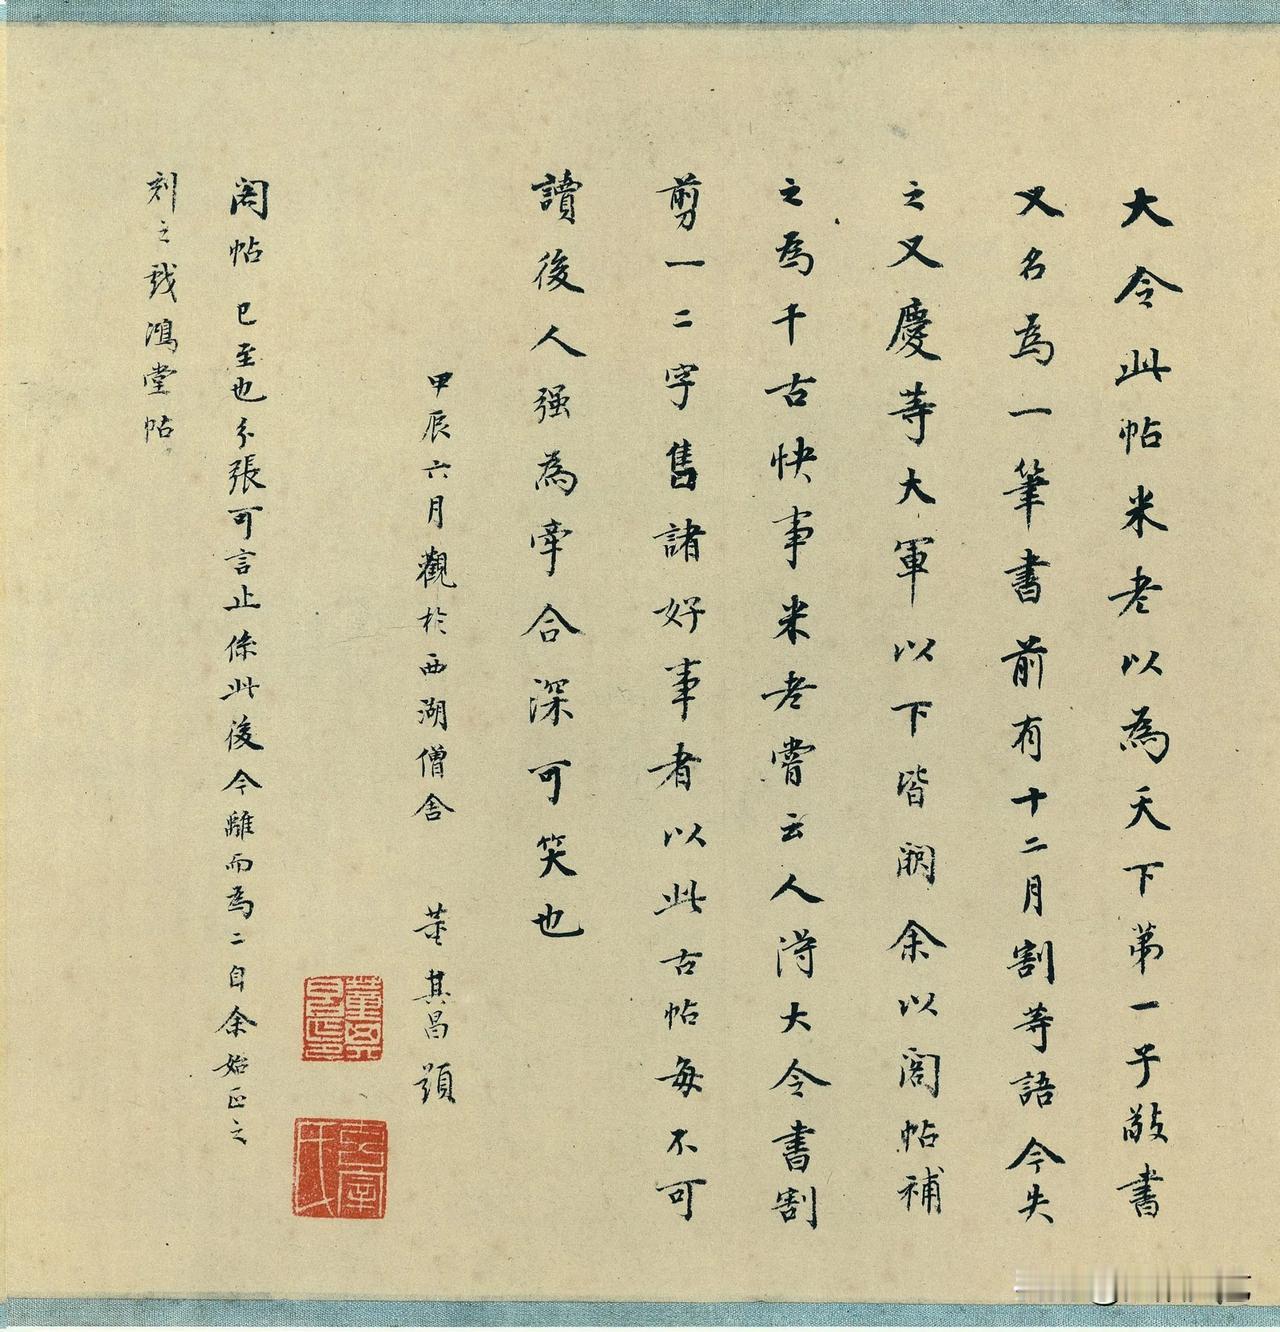 大令此帖米老以為天下第一子敬書
又名為一筆書前有十二月割等語今失
之又慶等大軍以下皆闕余以閣帖補
之為千古快事米老嘗云人得大令書割
剪一二字售諸好事者以此古帖每不可
讀後人強為牽合深可笑也
甲辰六月觀於西湖僧舍 董其昌題
閣帖已至也分張可言止係此後今離而為二自余始正之
刻之戲鴻堂帖